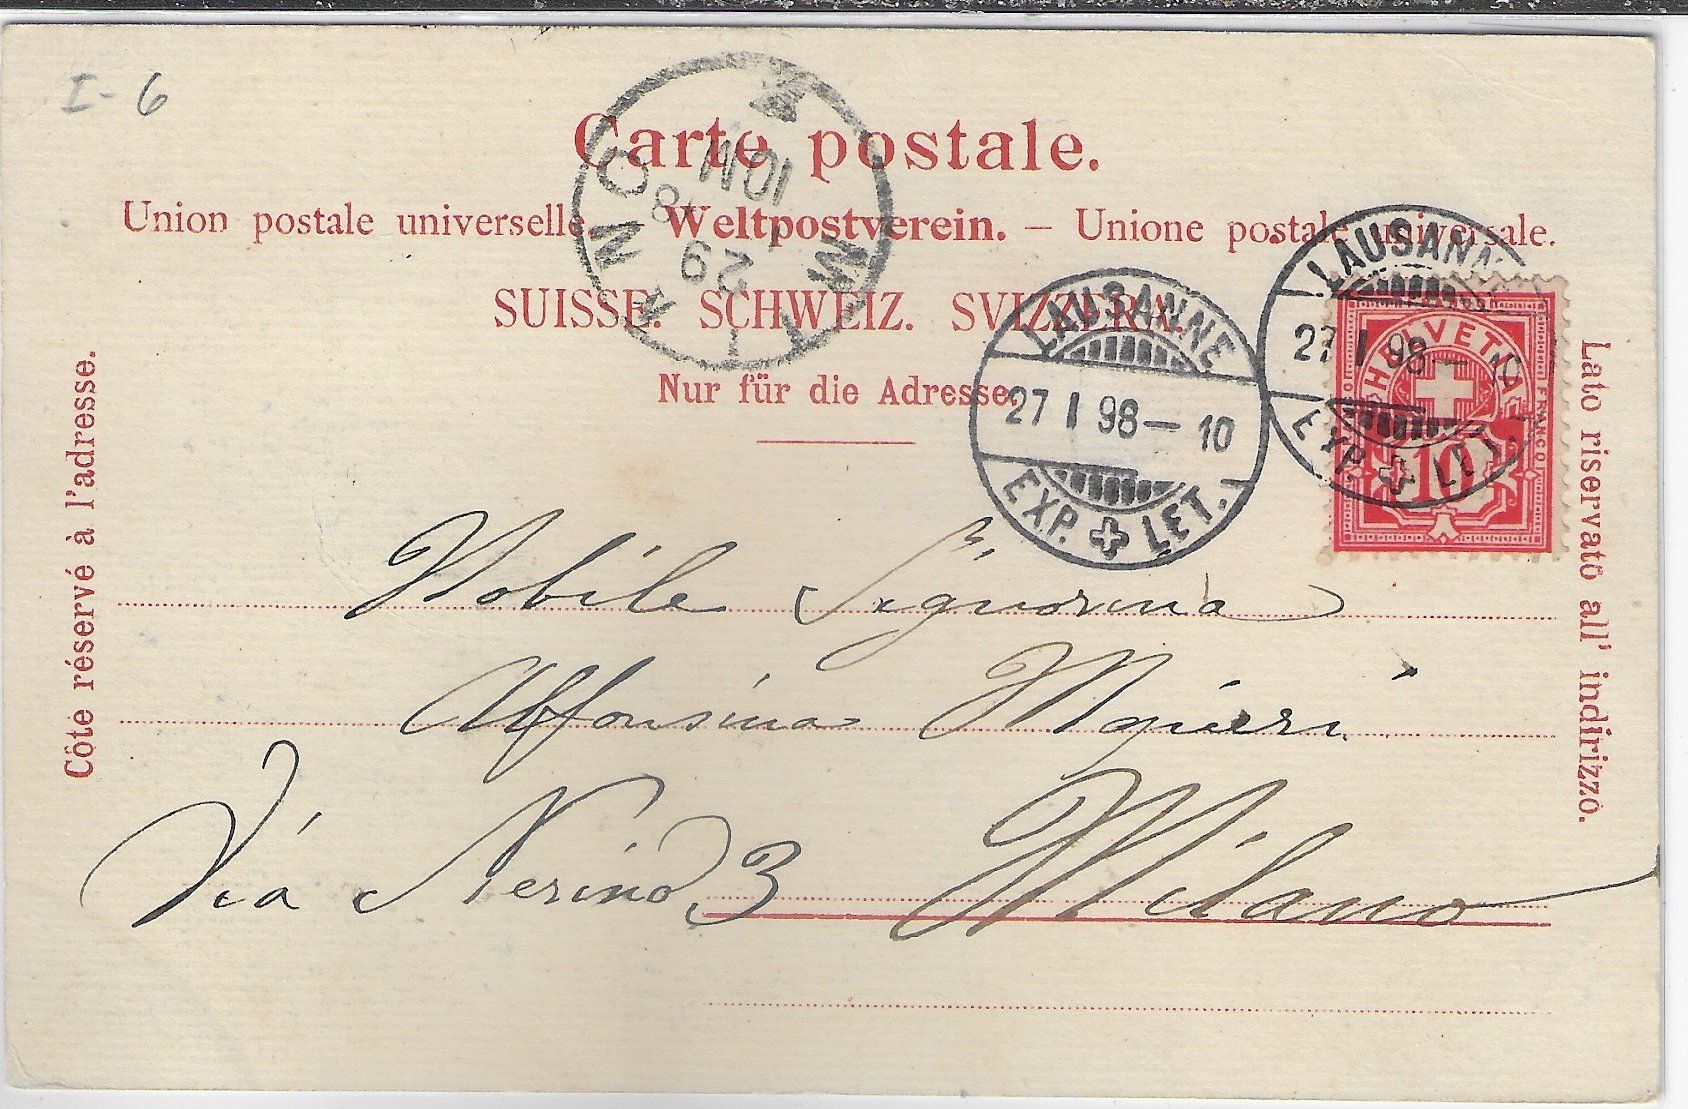 I-6
Carte postale.
Union postale universelle – Weltpostverein. – Unione postale universale.
SUISSE. SCHWEIZ. SVIZZERA.
Nur für die Adresse.
Côte réservé à l'adresse.
Lato riservato all' indirizzo.
MILANO
29
10M
LAUSANNE
27 I 98 – 10
EXP. LET.
LAUSANNE
27 I 98 – 10
EXP. LET.
HELVETIA
FRANCO
10
Nobile Signorina
Alfonsina
Via Nerino 3 Milano